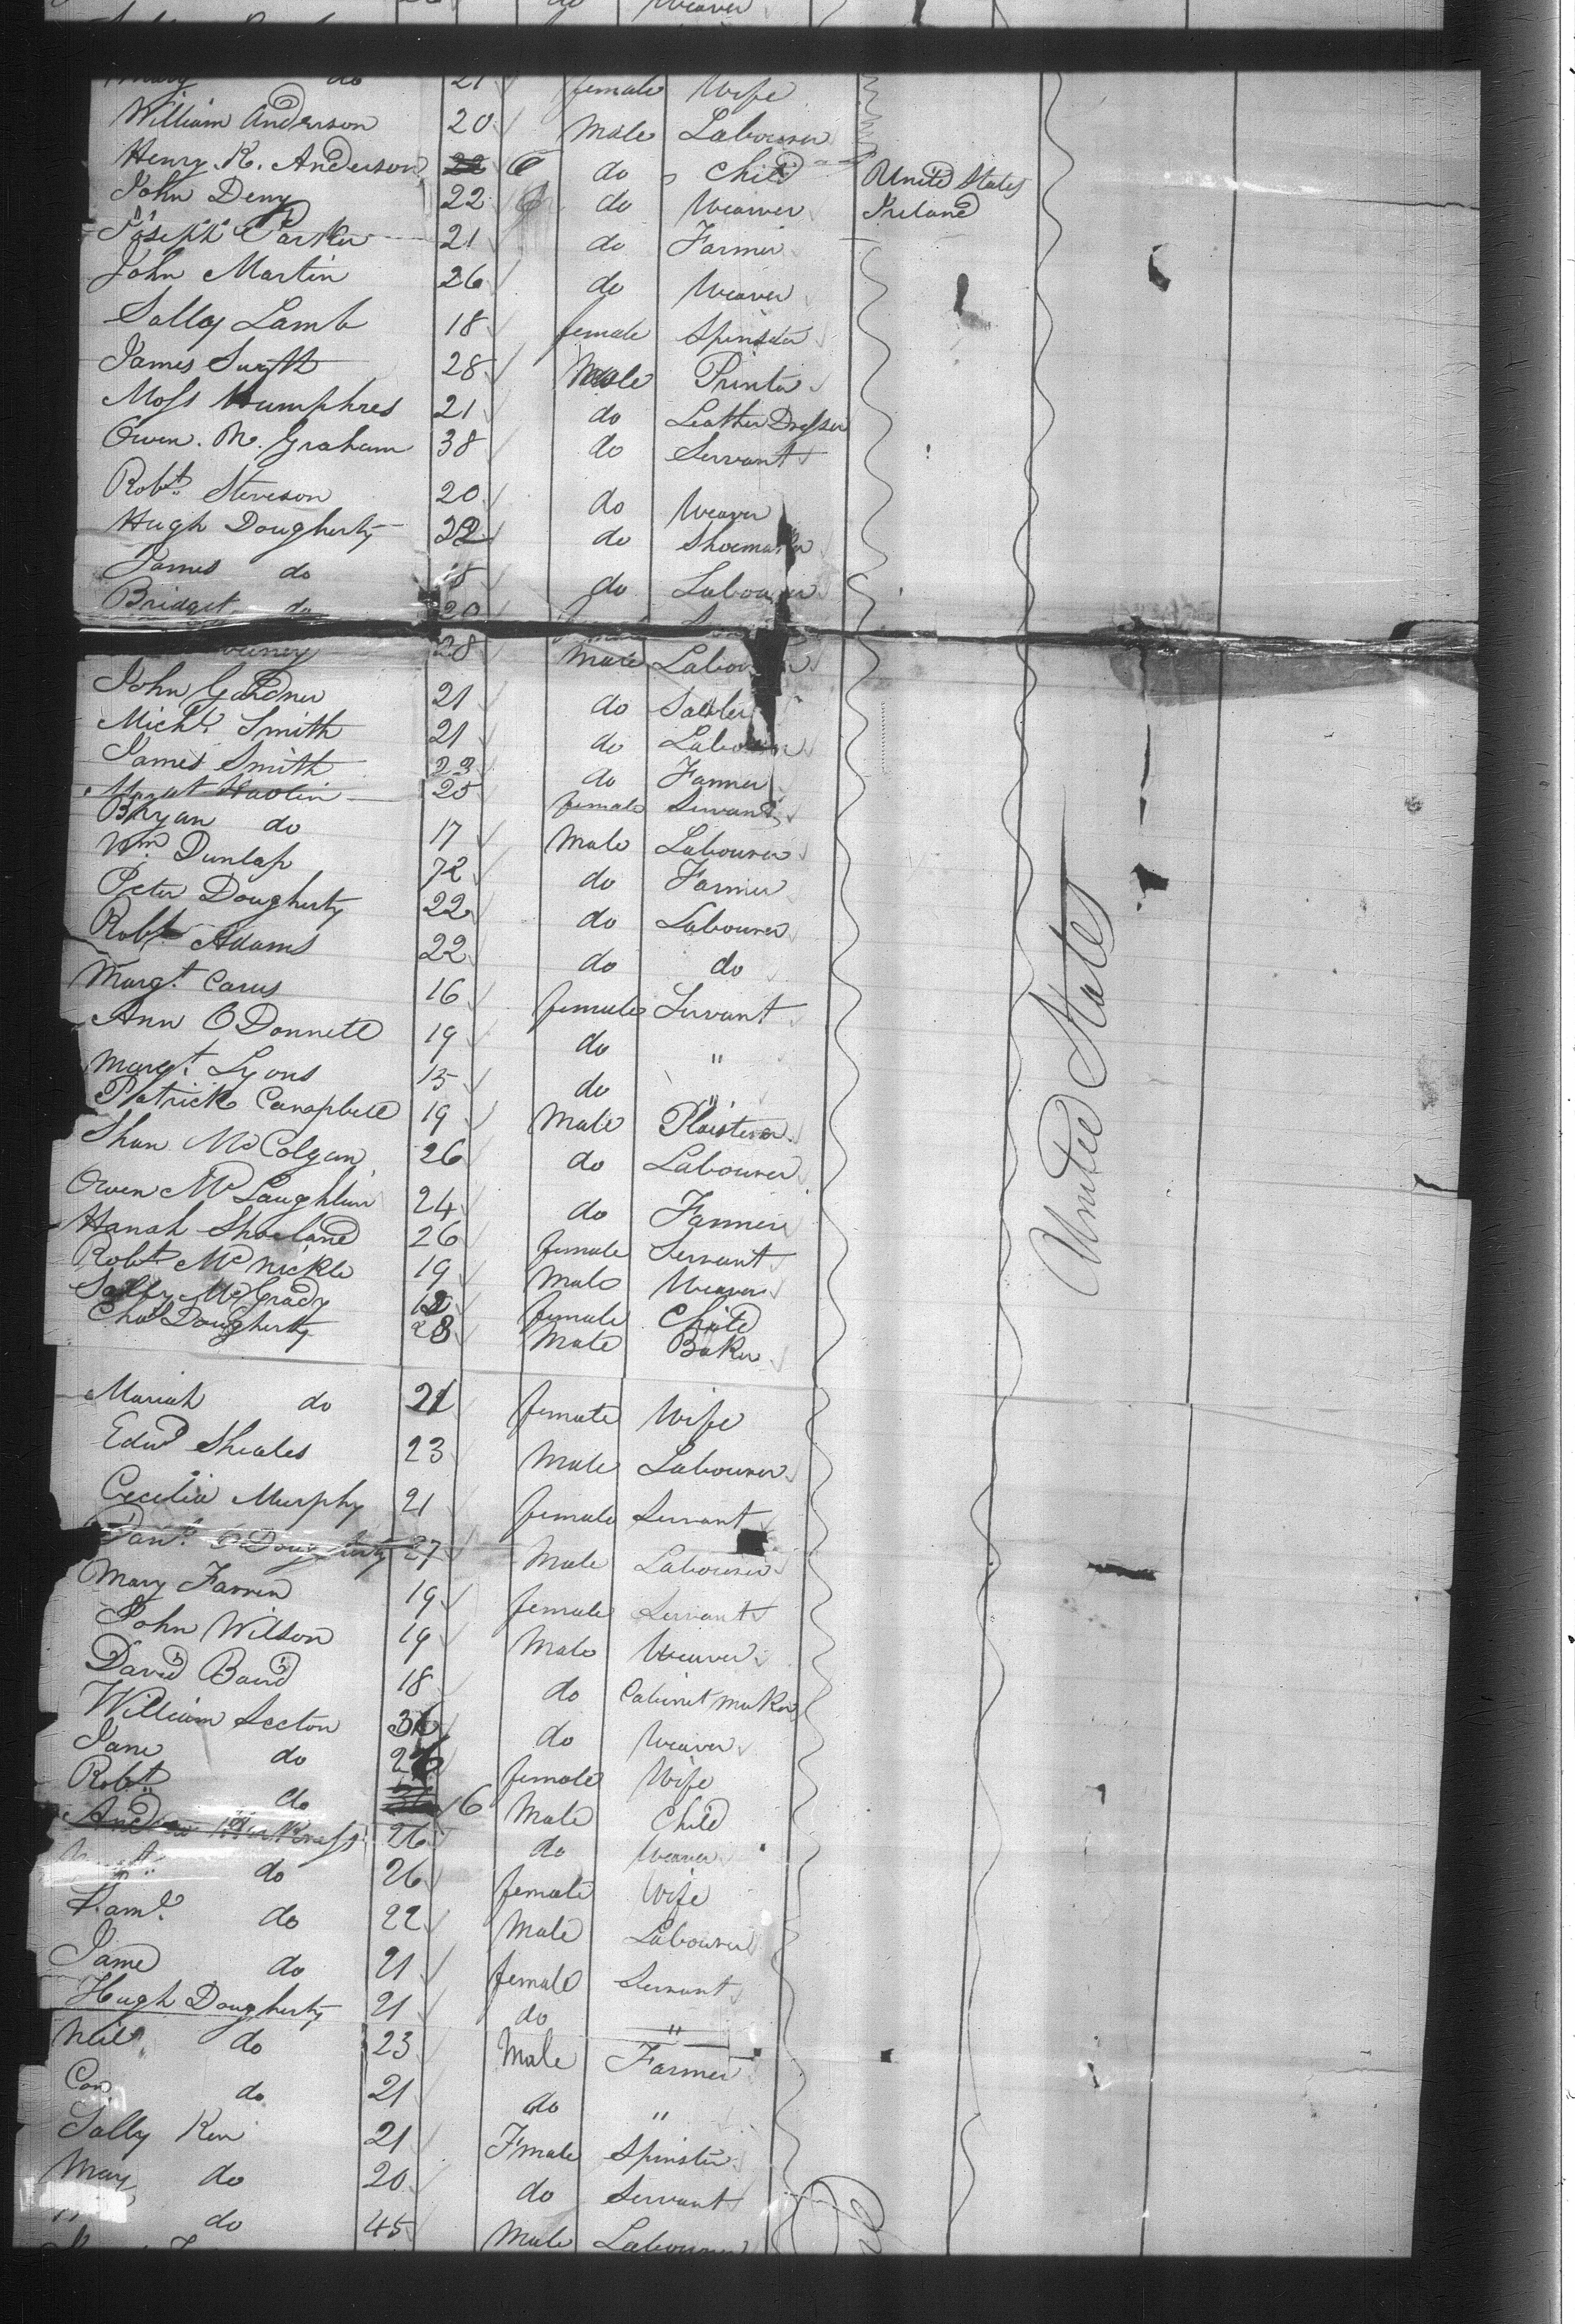 do Weaver
Mary do 21 female Wife
William Anderson 20 Male Labourer
Henry K. Anderson 6 do Child United States
John Deny 22 do Weaver Ireland
Joseph Parker 21 do Farmer
John Martin 26 do Weaver
Sally Lamb 18 female Spinster
James 28 Male Printer
Moss Humphres 21 do Leather Dresser
Owen. M. Graham 38 do Servant
Robt. Steveson 20 do Weaver
Hugh Dougherty 22 do Shoemaker
James do 18 do Labourer
Bridget do 20
28 Male Labourer
John Gardner 21 do Sadler
Michl. Smith 21 do Labourer
James Smith 23 do Farmer
25 female Servant
Bryan do 17 Male Labourer
Wm. Dunlap 72 do Farmer
Peter Dougherty 22 do Labourer
Robt. Adams 22 do do
Margt. Carus 16 female Servant
Ann O Donnell 19 do "
Margt. Lyons 15 do "
Patrick Campbell 19 Male Plaisterer
Shan McColgan 26 do Labourer
Owen McLaughlin 24 do Farmer
Hanah Shoeland 26 female Servant
Robt. McNickle 19 Male Weaver
Sally McGrady 12 female Child
Chas Dougherty 28 Male Baker
Mariah do 21 female Wife
Edwd Sheales 23 Male Labourer
Cecelia Murphy 21 female Servant
Danl. O Dougherty 27 Male Labourer
Mary Farren 19 female Servant
John Wilson 19 Male Weaver
David Baird 18 do Cabinet maker
William Secton 36 do Weaver
Jane do 26 female Wife
Robt. do 6 Male Child
Andrew Harkness 26 do Weaver
do 26 female Wife
Saml. do 22 Male Labourer
Jane do 21 female Servant
Hugh Dougherty 21 do "
Neil do 23 Male Farmer
Con do 21 do "
Sally Kerr 21 Fmale Spinster
Mary do 20 do Servant
do 45 Male Labourer
United States